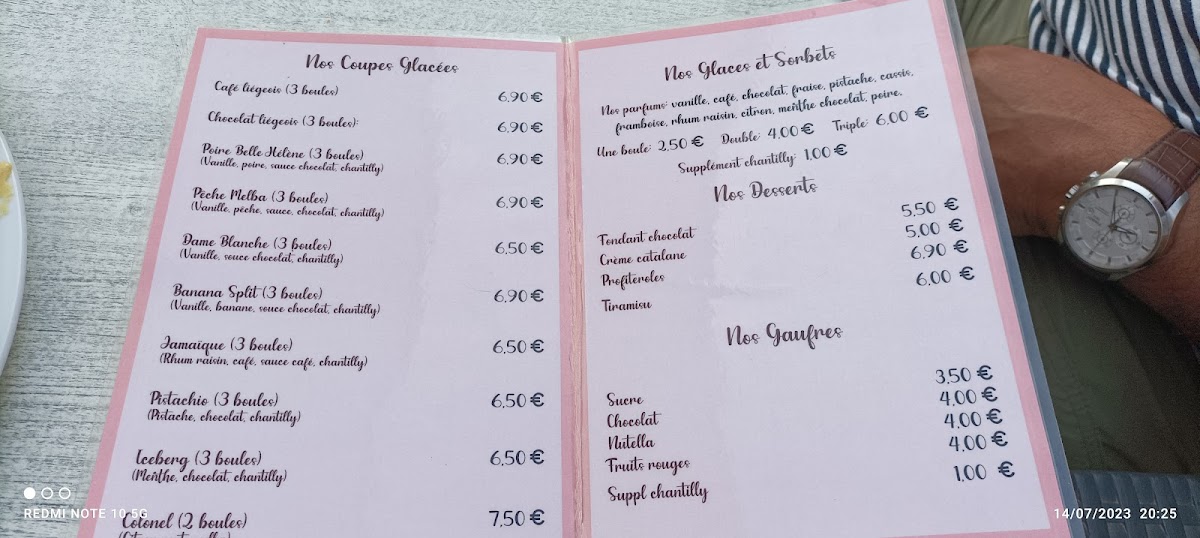 Nos Coupes Glacées
Café liégeois (3 boules) 6,90 €
Chocolat liégeois (3 boules): 6,90 €
Poire Belle Hélène (3 boules) 6,90 €
(Vanille, poire, sauce chocolat, chantilly)
Pêche Melba (3 boules) 6,90 €
(Vanille, pêche, sauce, chocolat, chantilly)
Dame Blanche (3 boules) 6,50 €
(Vanille, souce chocolat, chantilly)
Banana Split (3 boules) 6,90 €
(Vanille, banane, souce chocolat, chantilly)
Jamaïque (3 boules) 6,50 €
(Rhum raisin, café, sauce café, chantilly)
Pistachio (3 boules) 6,50 €
(Pistache, chocolat, chantilly)
Iceberg (3 boules) 6,50 €
(Menthe, chocolat, chantilly)
Colonel (2 boules) 7,50 €
Nos Glaces et Sorbets
Nos parfums: vanille, café, chocolat, fraise, pistache, cassis,
framboise, rhum raisin, citron, menthe chocolat, poire.
Une boule: 2,50 € Double: 4,00 € Triple: 6,00 €
Supplément chantilly: 1,00 €
Nos Desserts
Tondant chocolat 5,50 €
Crème catalane 5,00 €
Profiteroles 6,90 €
Tiramisu 6,00 €
Nos Gaufres
Sucre 3,50 €
Chocolat 4,00 €
Nutella 4,00 €
Fruits rouges 4,00 €
Suppl chantilly 1,00 €
REDMI NOTE 10 5G
14/07/2023 20:25